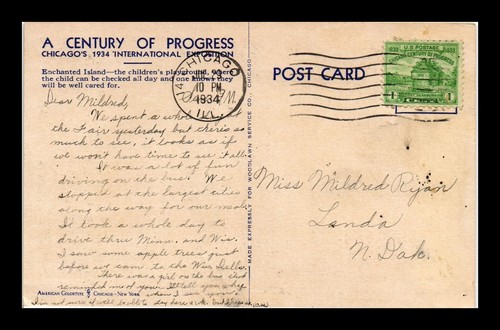 A CENTURY OF PROGRESS
CHICAGO'S 1934 INTERNATIONAL EXPOSITION
Enchanted Island—the children's playground, where
the child can be checked all day and one knows they
will be well cared for.
CHICAGO
10 PM
1934
ILL.
POST CARD
U.S. POSTAGE
1833 1933
Dear Mildred,
We spent a whole day at
the Fair yesterday but there's so
much to see, it looks as if
we won't have time to see it all.
It was a lot of fun
driving on the bus. We
stopped at the largest cities
along the way for our meals.
It took a whole day to
drive thru Minn. and Wis.
I saw some apple trees just
before we came to the Wis. Dells.
There was a girl on the bus that
reminded me of your. I'll tell you why
when I see you.
MADE EXPRESSLY FOR WOODLAWN SERVICE CO., CHICAGO
Miss Mildred Ryan
Landa
N. Dak.
AMERICAN COLORTYPE CHICAGO - NEW YORK